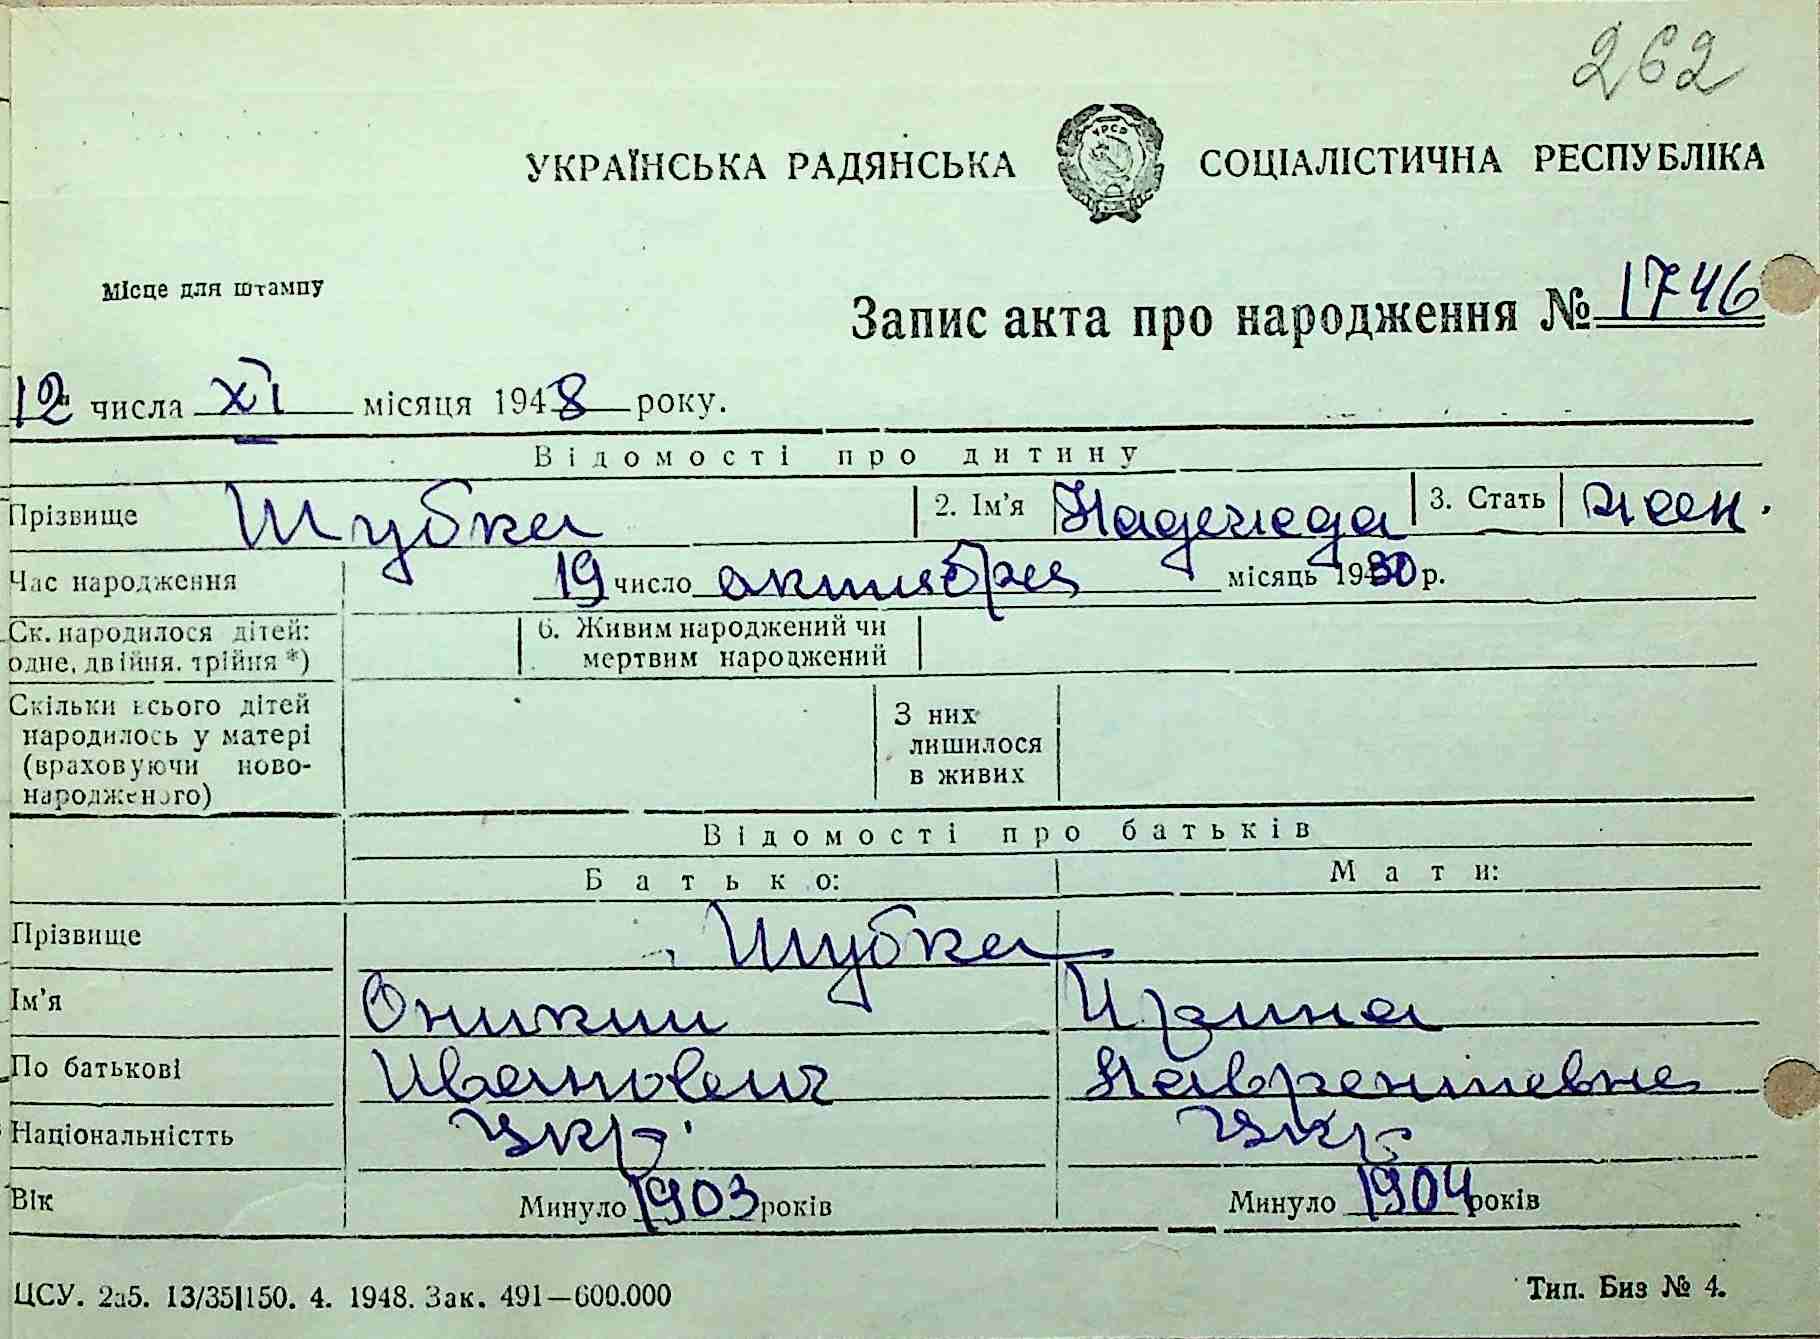 262
УКРАЇНСЬКА РАДЯНСЬКА СОЦІАЛІСТИЧНА РЕСПУБЛІКА
УРСР
Місце для штампу
Запис акта про народження № 1746
12 числа XI місяця 1948 року.
Відомості про дитину
Прізвище Шубка 2. Ім'я Надежда 3. Стать жен.
Час народження 19 число октября місяць 1930 р.
Ск. народилося дітей: 6. Живим народжений чи
одне, двійня, трійня *) мертвим народжений
Скільки всього дітей З них
народилось у матері лишилося
(враховуючи ново- в живих
народженого)
Відомості про батьків
Батько: Мати:
Прізвище Шубка
Ім'я Оникий Ирина
По батькові Иванович Лаврентьевна
Національністть Укр. Укр
Вік Минуло 1903 років Минуло 1904 років
ЦСУ. 2а5. 13/35|150. 4. 1948. Зак. 491—600.000 Тип. Биз № 4.